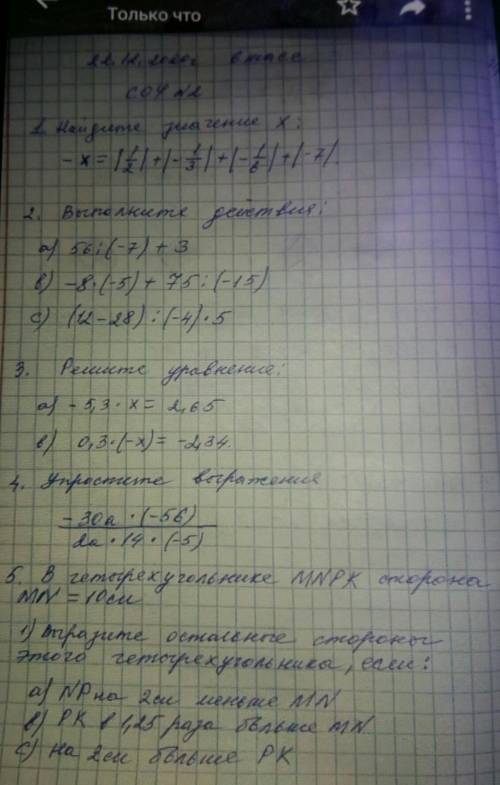 Только что
22.12.2020г 6 класс
СОЧ №2
1. Найдите значение х:
-х = |1/2| + |-1/3| + |-1/6| + |-7|.
2. Выполните действия:
а) 56:(-7) + 3
в) -8·(-5) + 75:(-15)
с) (12-28):(-4)·5
3. Решите уравнение:
а) -5,3·х = 2,65
в) 0,3·(-х) = -2,34.
4. Упростите выражения
-30а·(-56)
2а·14·(-5)
5. В четырехугольнике MNPK сторона
MN = 10см
1) Выразите остальные стороны
этого четырехугольника, если:
а) NP на 2см меньше MN
в) PK в 1,25 раза больше MN
с) на 2см больше PK